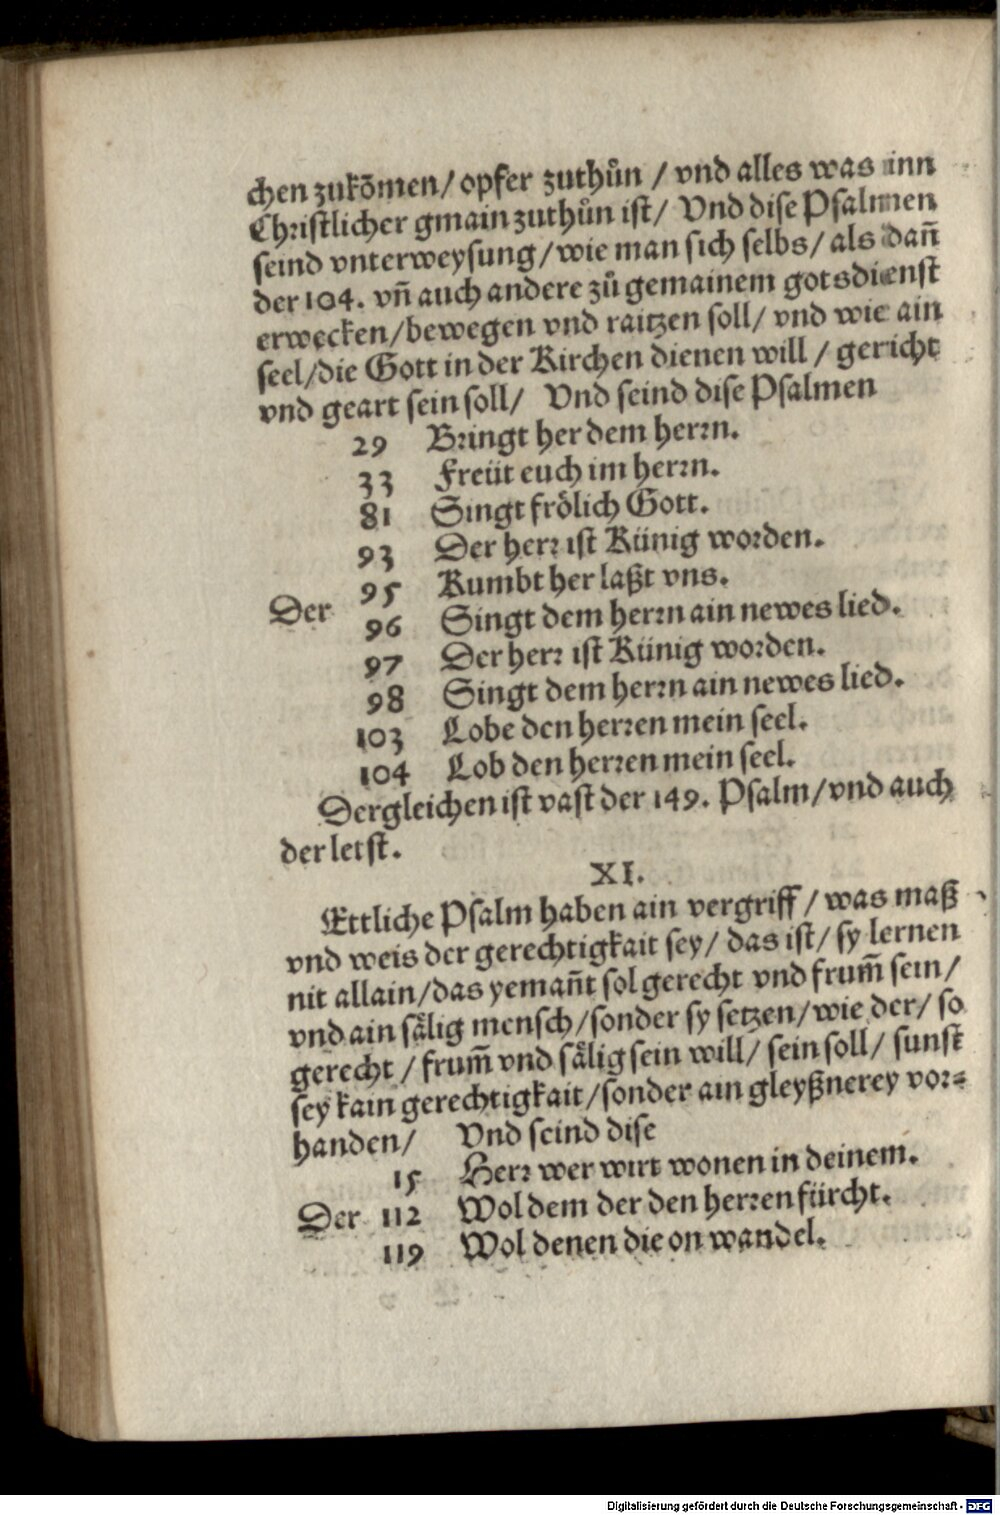 chen zukōmen/ opfer zuthůn / vnd alles was inn
Christlicher gmain zuthůn ist/ Vnd dise Psalmen
seind vnterweysung/ wie man sich selbs/ als dañ
der 104. vñ auch andere zů gemainem gotsdienst
erwecken/ bewegen vnd raitzen soll/ vnd wie ain
seel/ die Gott in der Kirchen dienen will / gericht
vnd geart sein soll/ Vnd seind dise Psalmen
29 Bringt her dem herrn.
33 Freüt euch im herrn.
81 Singt frölich Gott.
93 Der herr ist Künig worden.
95 Kumbt her laßt vns.
Der 96 Singt dem herrn ain newes lied.
97 Der herr ist Künig worden.
98 Singt dem herrn ain newes lied.
103 Lobe den herren mein seel.
104 Lob den herren mein seel.
Dergleichen ist vast der 149. Psalm/ vnd auch
der letst.
XI.
Ettliche Psalm haben ain vergriff / was maß
vnd weis der gerechtigkait sey/ das ist/ sy lernen
nit allain/ das yemañt sol gerecht vnd frum̄ sein/
vnd ain sälig mensch/ sonder sy setzen/ wie der/ so
gerecht / frum̄ vnd sälig sein will/ sein soll/ sunst
sey kain gerechtigkait/ sonder ain gleyßnerey vor⸗
handen/ Vnd seind dise
15 Herr wer wirt wonen in deinem.
Der 112 Wol dem der den herren fürcht.
119 Wol denen die on wandel.
Digitalisierung gefördert durch die Deutsche Forschungsgemeinschaft - DFG